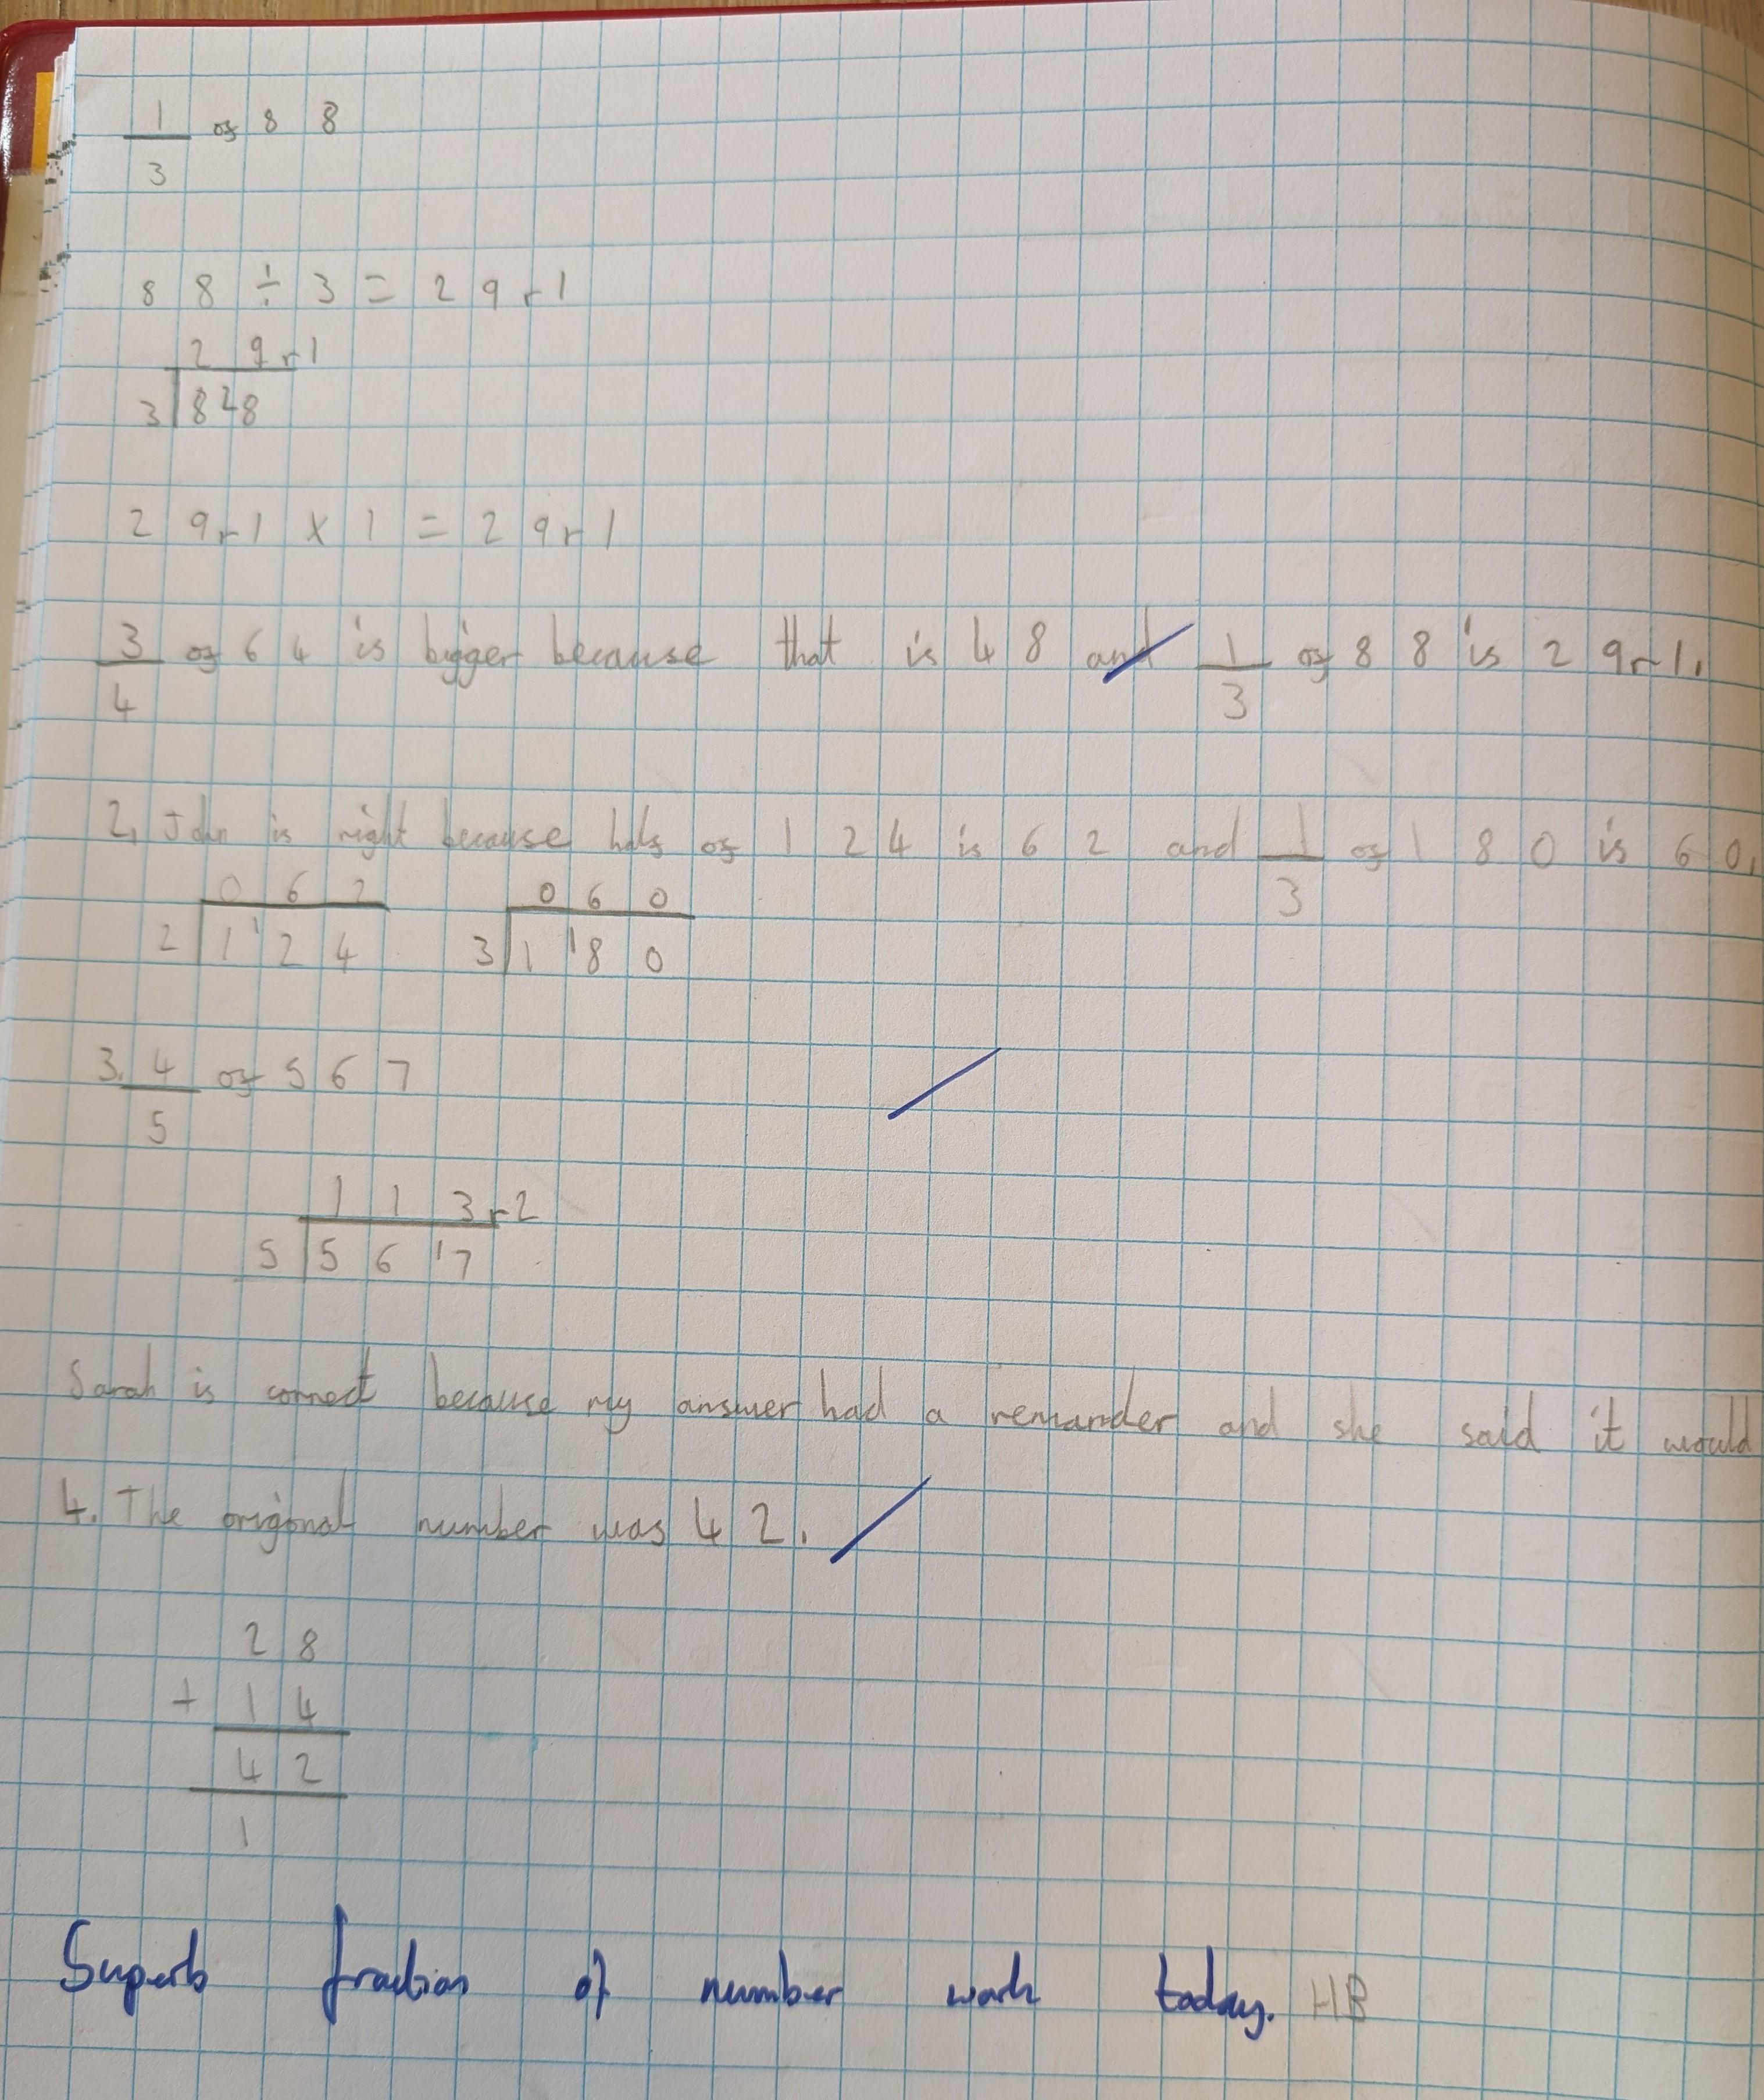 1/3 of 8 8
8 8 ÷ 3 = 2 9 r 1
2 9 r 1
3 8 2 8
2 9 r 1 x 1 = 2 9 r 1
3/4 of 6 4 is bigger because that is 4 8 and 1/3 of 8 8 is 2 9 r 1.
2, John is right because half of 1 2 4 is 6 2 and 1/3 of 1 8 0 is 6 0,
0 6 2 0 6 0
2 1 1 2 4 3 1 1 8 0
3. 4/5 of 5 6 7
1 1 3 r 2
5 5 6 1 7
Sarah is correct because my answer had a remander and she said it would
4. The origonal number was 4 2.
2 8
+ 1 4
4 2
1
Superb fraction of number work today. HB